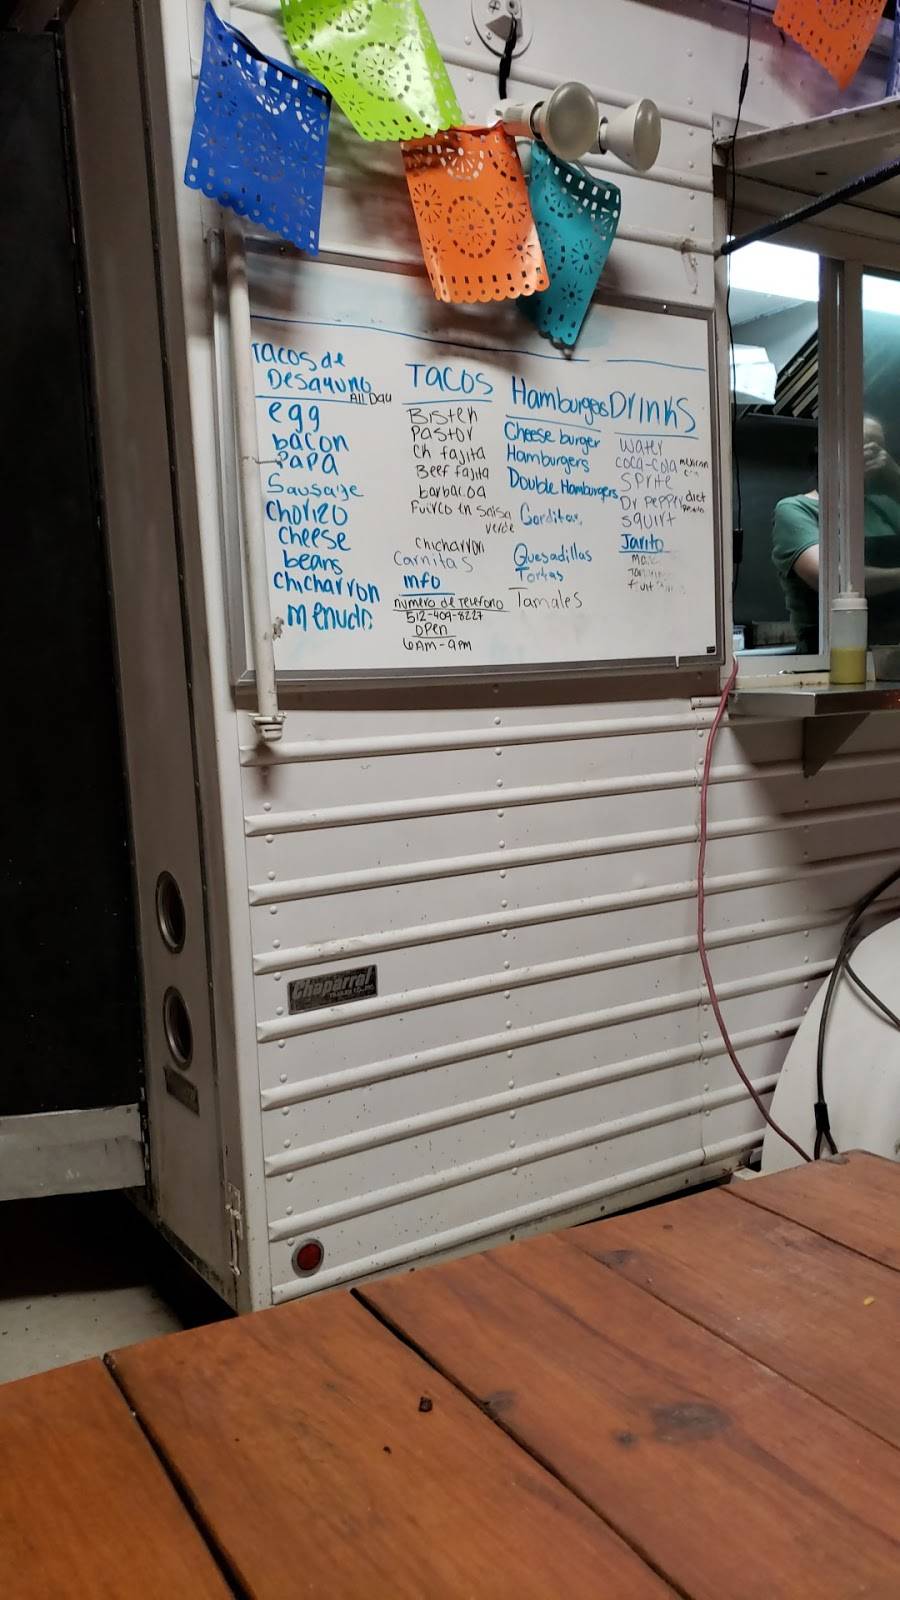 Tacos de
Desayuno
All Day
egg
bacon
PaPA
Sausage
Chorizo
Cheese
beans
Chicharron
Menudo
TACOS
BISTEH
Pastor
CH fajita
Beef fajita
barbacoa
Puerco en Salsa
verde
Chicharron
Carnitas
info
numero de Telefono
512-409-8227
OPEN
6AM-9PM
Hamburgers
Cheese burger
Hamburgers
Double Hamburgers
Gorditas
Quesadillas
Tortas
Tamales
DRINKS
Water
COCA-COLA mexican
SPRITE
Dr PEPPER diet
SQUIRT
Jarito
fruit
Chaparral
TRAILER CO., INC.